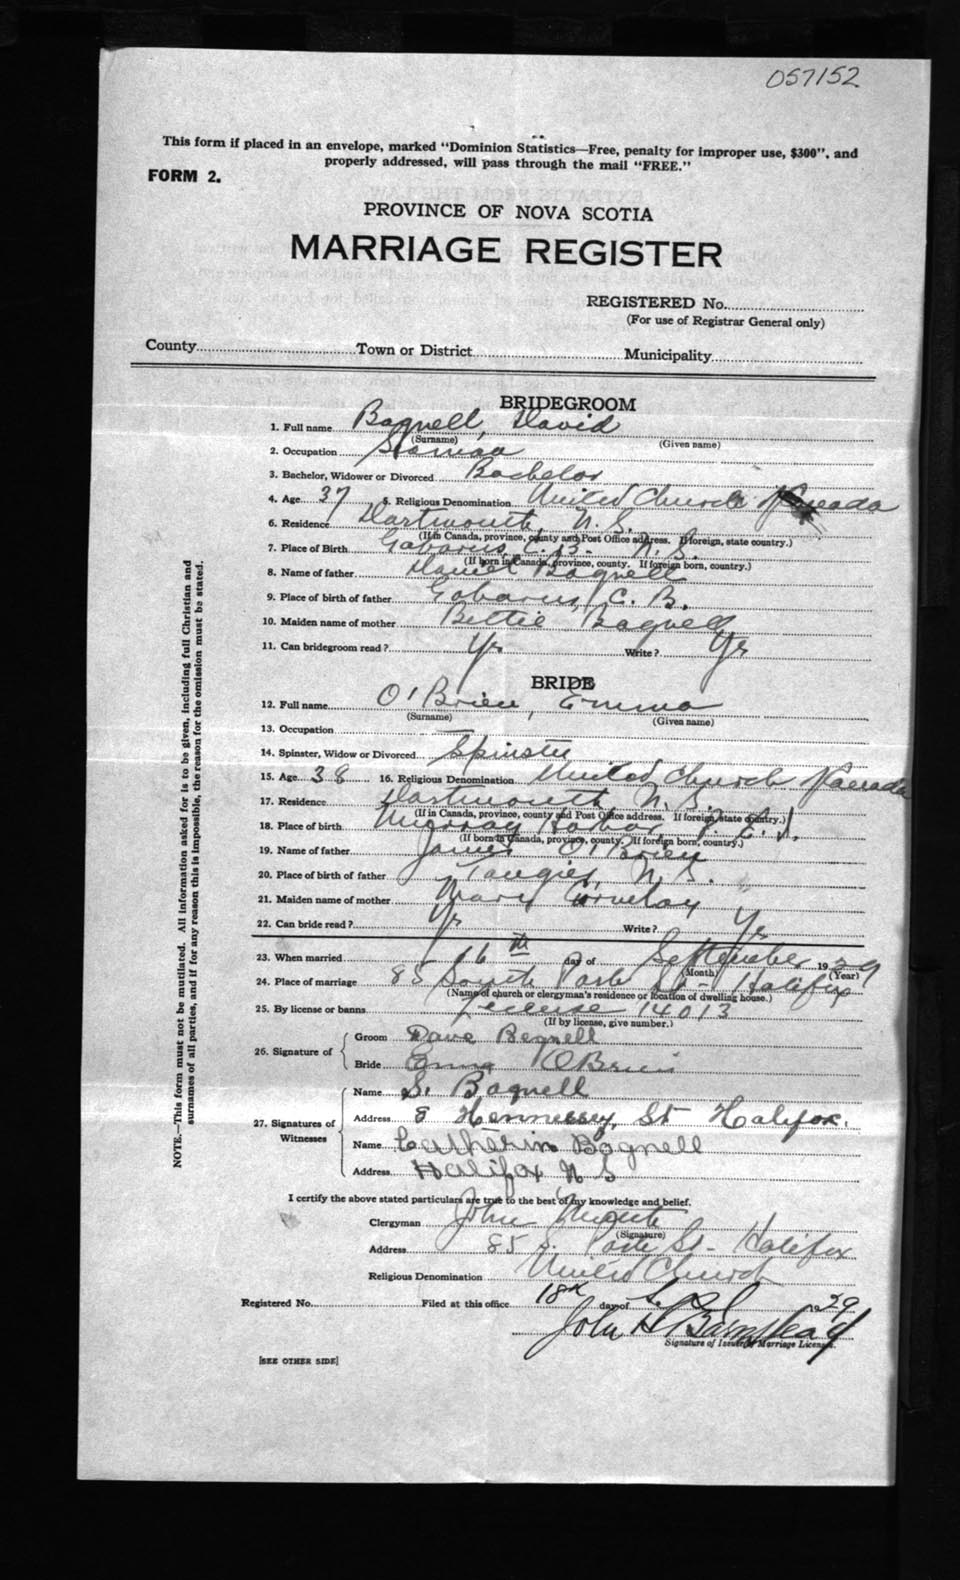 057152
This form if placed in an envelope, marked "Dominion Statistics—Free, penalty for improper use, $300", and
properly addressed, will pass through the mail "FREE."
FORM 2.
PROVINCE OF NOVA SCOTIA
MARRIAGE REGISTER
REGISTERED No.
(For use of Registrar General only)
County Town or District Municipality
BRIDEGROOM
1. Full name Bagnell, David
(Surname) (Given name)
2. Occupation Seaman
3. Bachelor, Widower or Divorced Bachelor
4. Age 37 5. Religious Denomination United Church Canada
6. Residence Dartmouth, N. S.
(If in Canada, province, county and Post Office address. If foreign, state country.)
7. Place of Birth Gabarus, C. B. N. S.
(If born in Canada, province, county. If foreign born, country.)
8. Name of father Daniel Bagnell
9. Place of birth of father Gabarus, C. B.
10. Maiden name of mother Bettie Bagnell
11. Can bridegroom read? Yes Write? Yes
BRIDE
12. Full name O'Brien, Emma
(Surname) (Given name)
13. Occupation
14. Spinster, Widow or Divorced Spinster
15. Age 38 16. Religious Denomination United Church Canada
17. Residence Dartmouth, N. S.
(If in Canada, province, county and Post Office address. If foreign, state country.)
18. Place of birth Murray Harbor, P. E. I.
(If born in Canada, province, county. If foreign born, country.)
19. Name of father James O'Brien
20. Place of birth of father Tangier, N. S.
21. Maiden name of mother Mary
22. Can bride read? Yr Write? Yes
23. When married 16th day of September 1929
(Month) (Year)
24. Place of marriage 85 South Park St - Halifax
(Name of church or clergyman's residence or location of dwelling house.)
25. By license or banns License 14013
(If by license, give number.)
26. Signature of
Groom Dave Bagnell
Bride Emma OBrien
27. Signatures of Witnesses
Name S. Bagnell
Address 8 Hennessey, St Halifax.
Name Catherin Bagnell
Address Halifax N S
I certify the above stated particulars are true to the best of my knowledge and belief.
Clergyman John
(Signature)
Address 85 S. Park St - Halifax
Religious Denomination United Church
Registered No. Filed at this office 18th day of 1929
John H Barnstead
Signature of Issuer of Marriage Licenses.
[SEE OTHER SIDE]
NOTE.—This form must not be mutilated. All information asked for is to be given, including full Christian and
surnames of all parties, and if for any reason this is impossible, the reason for the omission must be stated.